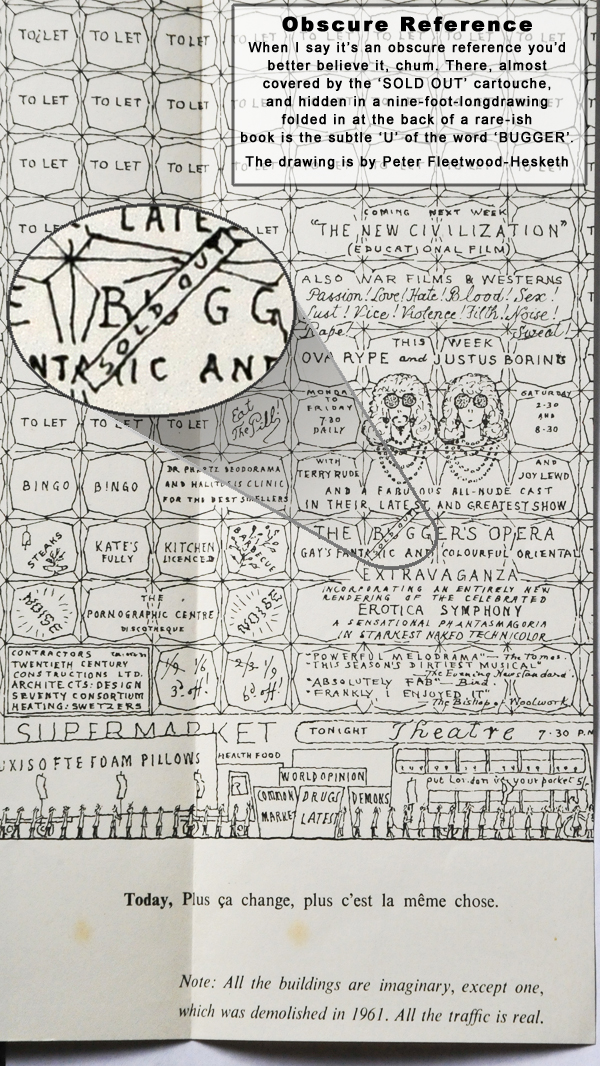 Obscure Reference
When I say it's an obscure reference you'd
better believe it, chum. There, almost
covered by the ‘SOLD OUT’ cartouche,
and hidden in a nine-foot-longdrawing
folded in at the back of a rare-ish
book is the subtle ‘U’ of the word ‘BUGGER’.
The drawing is by Peter Fleetwood-Hesketh
TO LET TO LET TO LET
TO LET TO LET TO LET
TO LET TO LET TO LET
TO LET LET
COMING NEXT WEEK
"THE NEW CIVILIZATION"
(EDUCATIONAL FILM)
ALSO WAR FILMS & WESTERNS
Passion! Love! Hate! Blood! Sex!
Lust! Vice! Violence! Filth! Noise!
Rape! Sweat!
THIS WEEK
OVA RYPE and JUSTUS BORING
LATES
B GG
SOLD OUT
NTA IC AND
MONDAY
TO
FRIDAY
7.30
DAILY
SATURDAY
2-30
AND
8-30
TO LET TO LET TO LET
Eat
The Pill!
WITH
TERRY RUDE
AND
JOY LEWD
AND A FABULOUS ALL-NUDE CAST
IN THEIR LATEST AND GREATEST SHOW
BINGO BINGO
DEODORAMA
AND HALITOSIS CLINIC
FOR THE BEST SMELLERS
THE BUGGER'S OPERA
SOLD OUT
GAY'S FANTA IC AND COLOURFUL ORIENTAL
EXTRAVAGANZA
STEAKS
KATE'S
FULLY
KITCHEN
LICENCED
BARBECUE
INCORPORATING AN ENTIRELY NEW
RENDERING OF THE CELEBRATED
EROTICA SYMPHONY
A SENSATIONAL PHANTASMAGORIA
IN STARKEST NAKED TECHNICOLOR
NOISE
THE
PORNOGRAPHIC CENTRE
DISCOTHEQUE
NOISE
CONTRACTORS
TWENTIETH CENTURY
CONSTRUCTIONS LTD.
ARCHITECTS: DESIGN
SEVENTY CONSORTIUM
HEATING: SWETZERS
1/9 1/6
3d off!
2/3 1/9
6d off!
"POWERFUL MELODRAMA" — The Tomes.
"THIS SEASON'S DIRTIEST MUSICAL"
— The Evening Newstandard.
"ABSOLUTELY FAB" — Bird.
"FRANKLY I ENJOYED IT"
— The Bishop of Woolwork
SUPERMARKET
TONIGHT Theatre 7·30 P.M
UXISOFTE FOAM PILLOWS
HEALTH FOOD
WORLD OPINION
COMMON
MARKET
DRUGS
LATEST
DEMONS
put London in your pocket 5/-
Today, Plus ça change, plus c'est la même chose.
Note: All the buildings are imaginary, except one,
which was demolished in 1961. All the traffic is real.